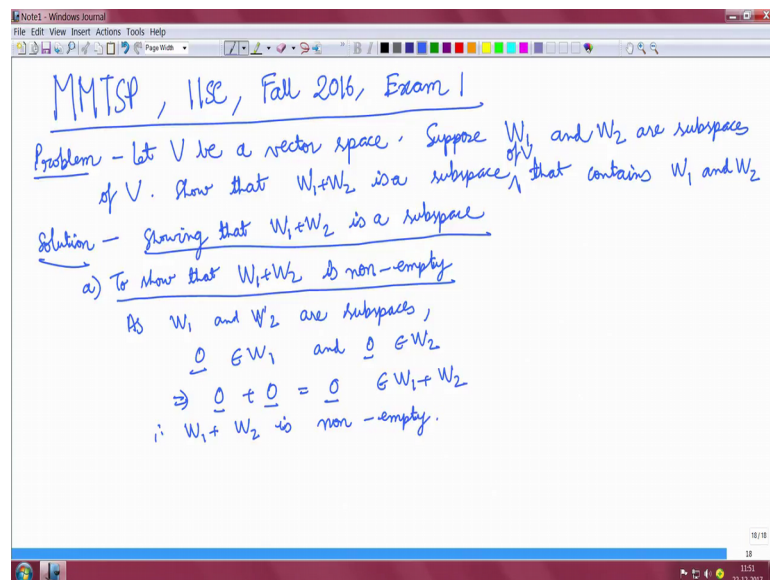 Note1 - Windows Journal
File Edit View Insert Actions Tools Help
Page Width
MMTSP, IISC, Fall 2016, Exam 1
Problem - Let V be a vector space. Suppose W1 and W2 are subspaces
of V. Show that W1+W2 is a subspace of V, that contains W1 and W2
Solution - Showing that W1+W2 is a subspace
a) To show that W1+W2 is non-empty
As W1 and W2 are subspaces,
0 ∈ W1 and 0 ∈ W2
⇒ 0 + 0 = 0 ∈ W1+W2
∴ W1+W2 is non-empty.
18/18
18
11:51